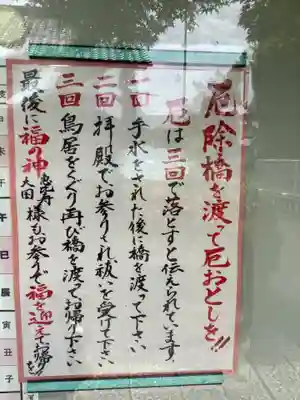 厄除橋を渡って厄おとしを!!
厄は三回で落とすと伝えられています。
一回 手水をされた後に橋を渡って下さい
二回 拝殿でお参りされ祓いを受けて下さい
三回 鳥居をくぐり再び橋を渡ってお帰り下さい
最後に福の神 恵比寿 大国 様もお参りで福を迎えてお帰りを
亥
申
未
午
午
巳
辰
寅
丑
子